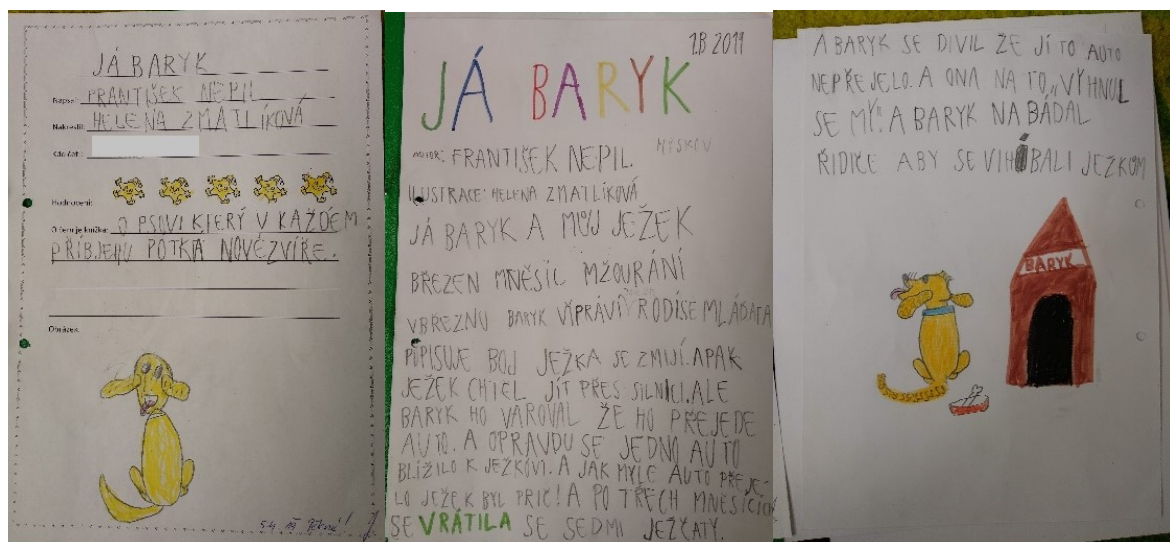 JÁ BARYK
Napsal: FRANTIŠEK NEPIL
Nakreslil: HELENA ZMATLÍKOVÁ
Hodnocení:
O čem je knížka: O PSOVI KTERÝ V KAŽDÉM
PŘÍBJEHU POTKÁ NOVÉ ZVÍŘE.
Obrázek:
5.4.
1.B 2019
JÁ BARYK
AUTOR: FRANTIŠEK NEPIL.
ILUSTRACE: HELENA ZMATLÍKOVÁ
JÁ BARYK A MŮJ JEŽEK
BŘEZEN MNĚSÍC MŽOURÁNÍ
V BŘEZNU BARYK VIPRÁVÍ RODÍ SE MLÁĎATA
POPISUJE BOJ JEŽKA SE ZMIJÍ. A PAK
JEŽEK CHTĚL JÍT PŘES SILNICI. ALE
BARYK HO VAROVAL ŽE HO PŘEJEDE
AUTO. A OPRAVDU SE JEDNO AUTO
BLÍŽILO K JEŽKOVI. A JAK MYLE AUTO PŘEJE-
LO JEŽEK BYL PRIČ! A PO TŘECH MNESÍCÍCH
SE VRÁTILA SE SEDMI JEŽČATY.
A BARYK SE DIVIL ŽE JÍ TO AUTO
NEPŘEJELO. A ONA NA TO „VYHNUL
SE MY." A BARYK NABÁDAL
ŘIDIČE ABY SE VIHÍBALI JEŽKŮM
BARYK